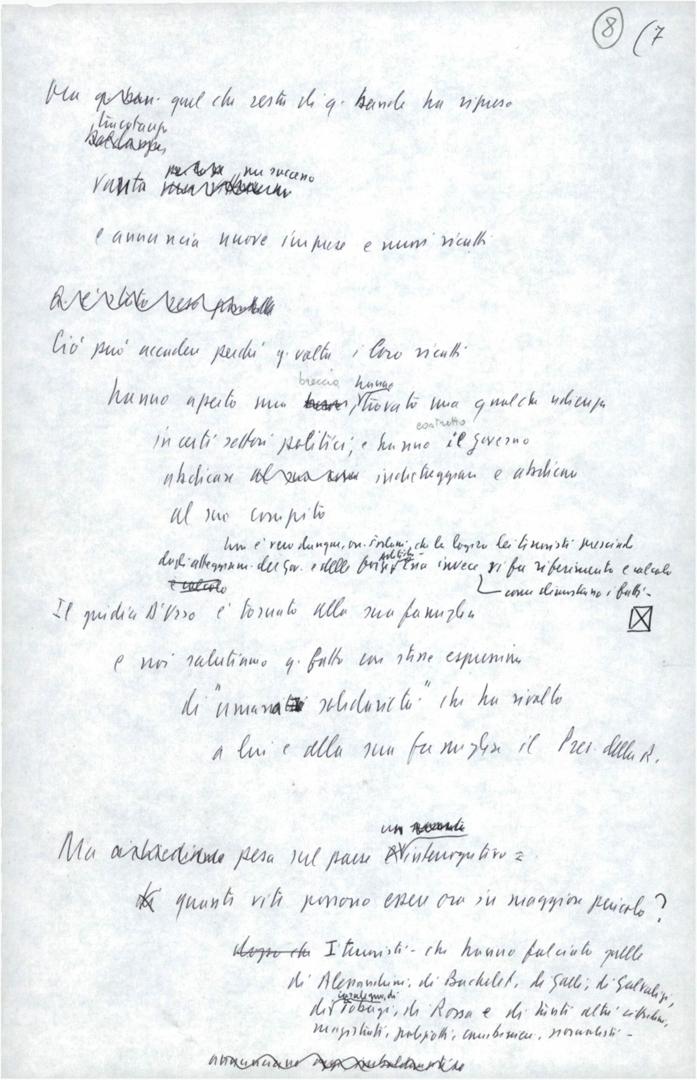 8 (7
Ma quel che resta di q. bande ha ripreso
tracotanza
vanta un successo
e annuncia nuove imprese e nuovi ricatti
Ciò può accadere perché q. volta i loro ricatti
breccia hanno
hanno aperto una trovato una qualche udienza
costretto
in certi settori politici, e hanno il governo
abdicare indietreggiare e abdicare
al suo compito
non è vero dunque, on. che la logica dei terroristi prescinde
dagli atteggiam. del Gov. e delle forze politiche essa invece vi fa riferimento e calcolo
e calcolo
come dimostrano i fatti -
Il giudice D'Urso è tornato alla sua famiglia
e noi salutiamo q. fatto con stesse espressioni
di "umana solidarietà" che ha rivolto
a lui e alla sua famiglia il Pres. della R.
un
Ma pesa sul paese interrogativo =
quante vite possono essere ora in maggior pericolo?
dopo che I terroristi - che hanno falciato quelle
di Alessandrini, di Bachelet, di Galli, di Galvaligi,
Casalegno, di
di Tobagi, di Rossa e di tanti altri cittadini,
magistrati, poliziotti, carabinieri, giornalisti -